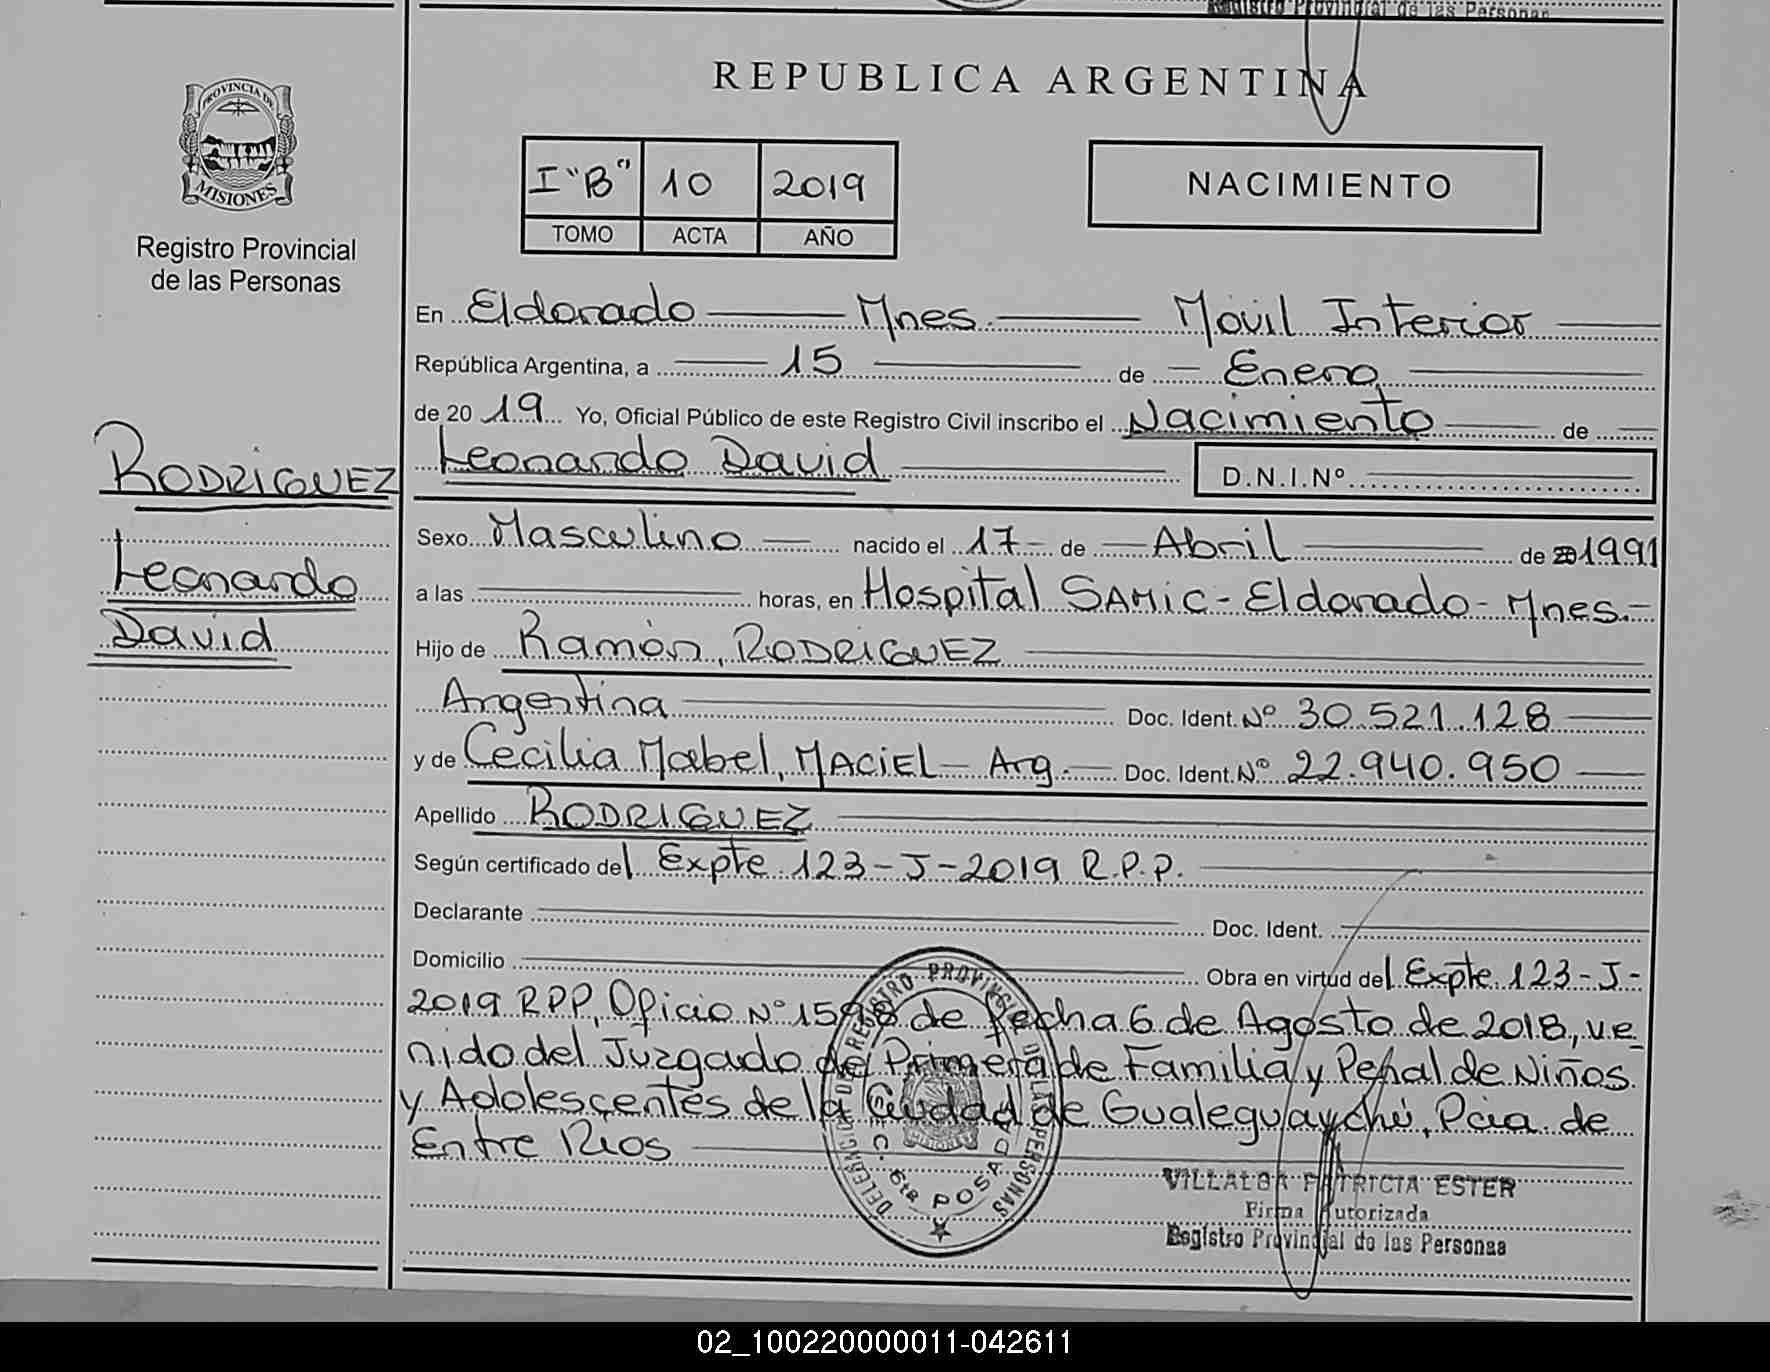 Registro Provincial de las Personas
REPUBLICA ARGENTINA
PROVINCIA DE
MISIONES
Registro Provincial
de las Personas
I "B" 10 2019
TOMO ACTA AÑO
NACIMIENTO
RODRIGUEZ
Leonardo
David
En Eldorado Mnes. Movil Interior
República Argentina, a 15 de Enero
de 2019 Yo, Oficial Público de este Registro Civil inscribo el Nacimiento de
Leonardo David D.N.I.Nº
Sexo Masculino nacido el 17 de Abril de 1991
a las horas, en Hospital SAMIC - Eldorado - Mnes.-
Hijo de Ramón, RODRIGUEZ
Argentina Doc. Ident. Nº 30.521.128
y de Cecilia Mabel, MACIEL - Arg. Doc. Ident. Nº 22.940.950
Apellido RODRIGUEZ
Según certificado del Expte 123-J-2019 R.P.P.
Declarante Doc. Ident.
Domicilio Obra en virtud del Expte. 123-J-
2019 RPP, Oficio Nº 1598 de fecha 6 de Agosto de 2018, ve_
nido del Juzgado de Primera de Familia y Penal de Niños
y Adolescentes de la Ciudad de Gualeguaychú, Pcia. de
Entre Rios
DELEGACION DEL REGISTRO PROVINCIAL DE LAS PERSONAS
SEC. 6ta POSADAS
VILLALBA PATRICIA ESTER
Firma Autorizada
Registro Provincial de las Personas
02_100220000011-042611